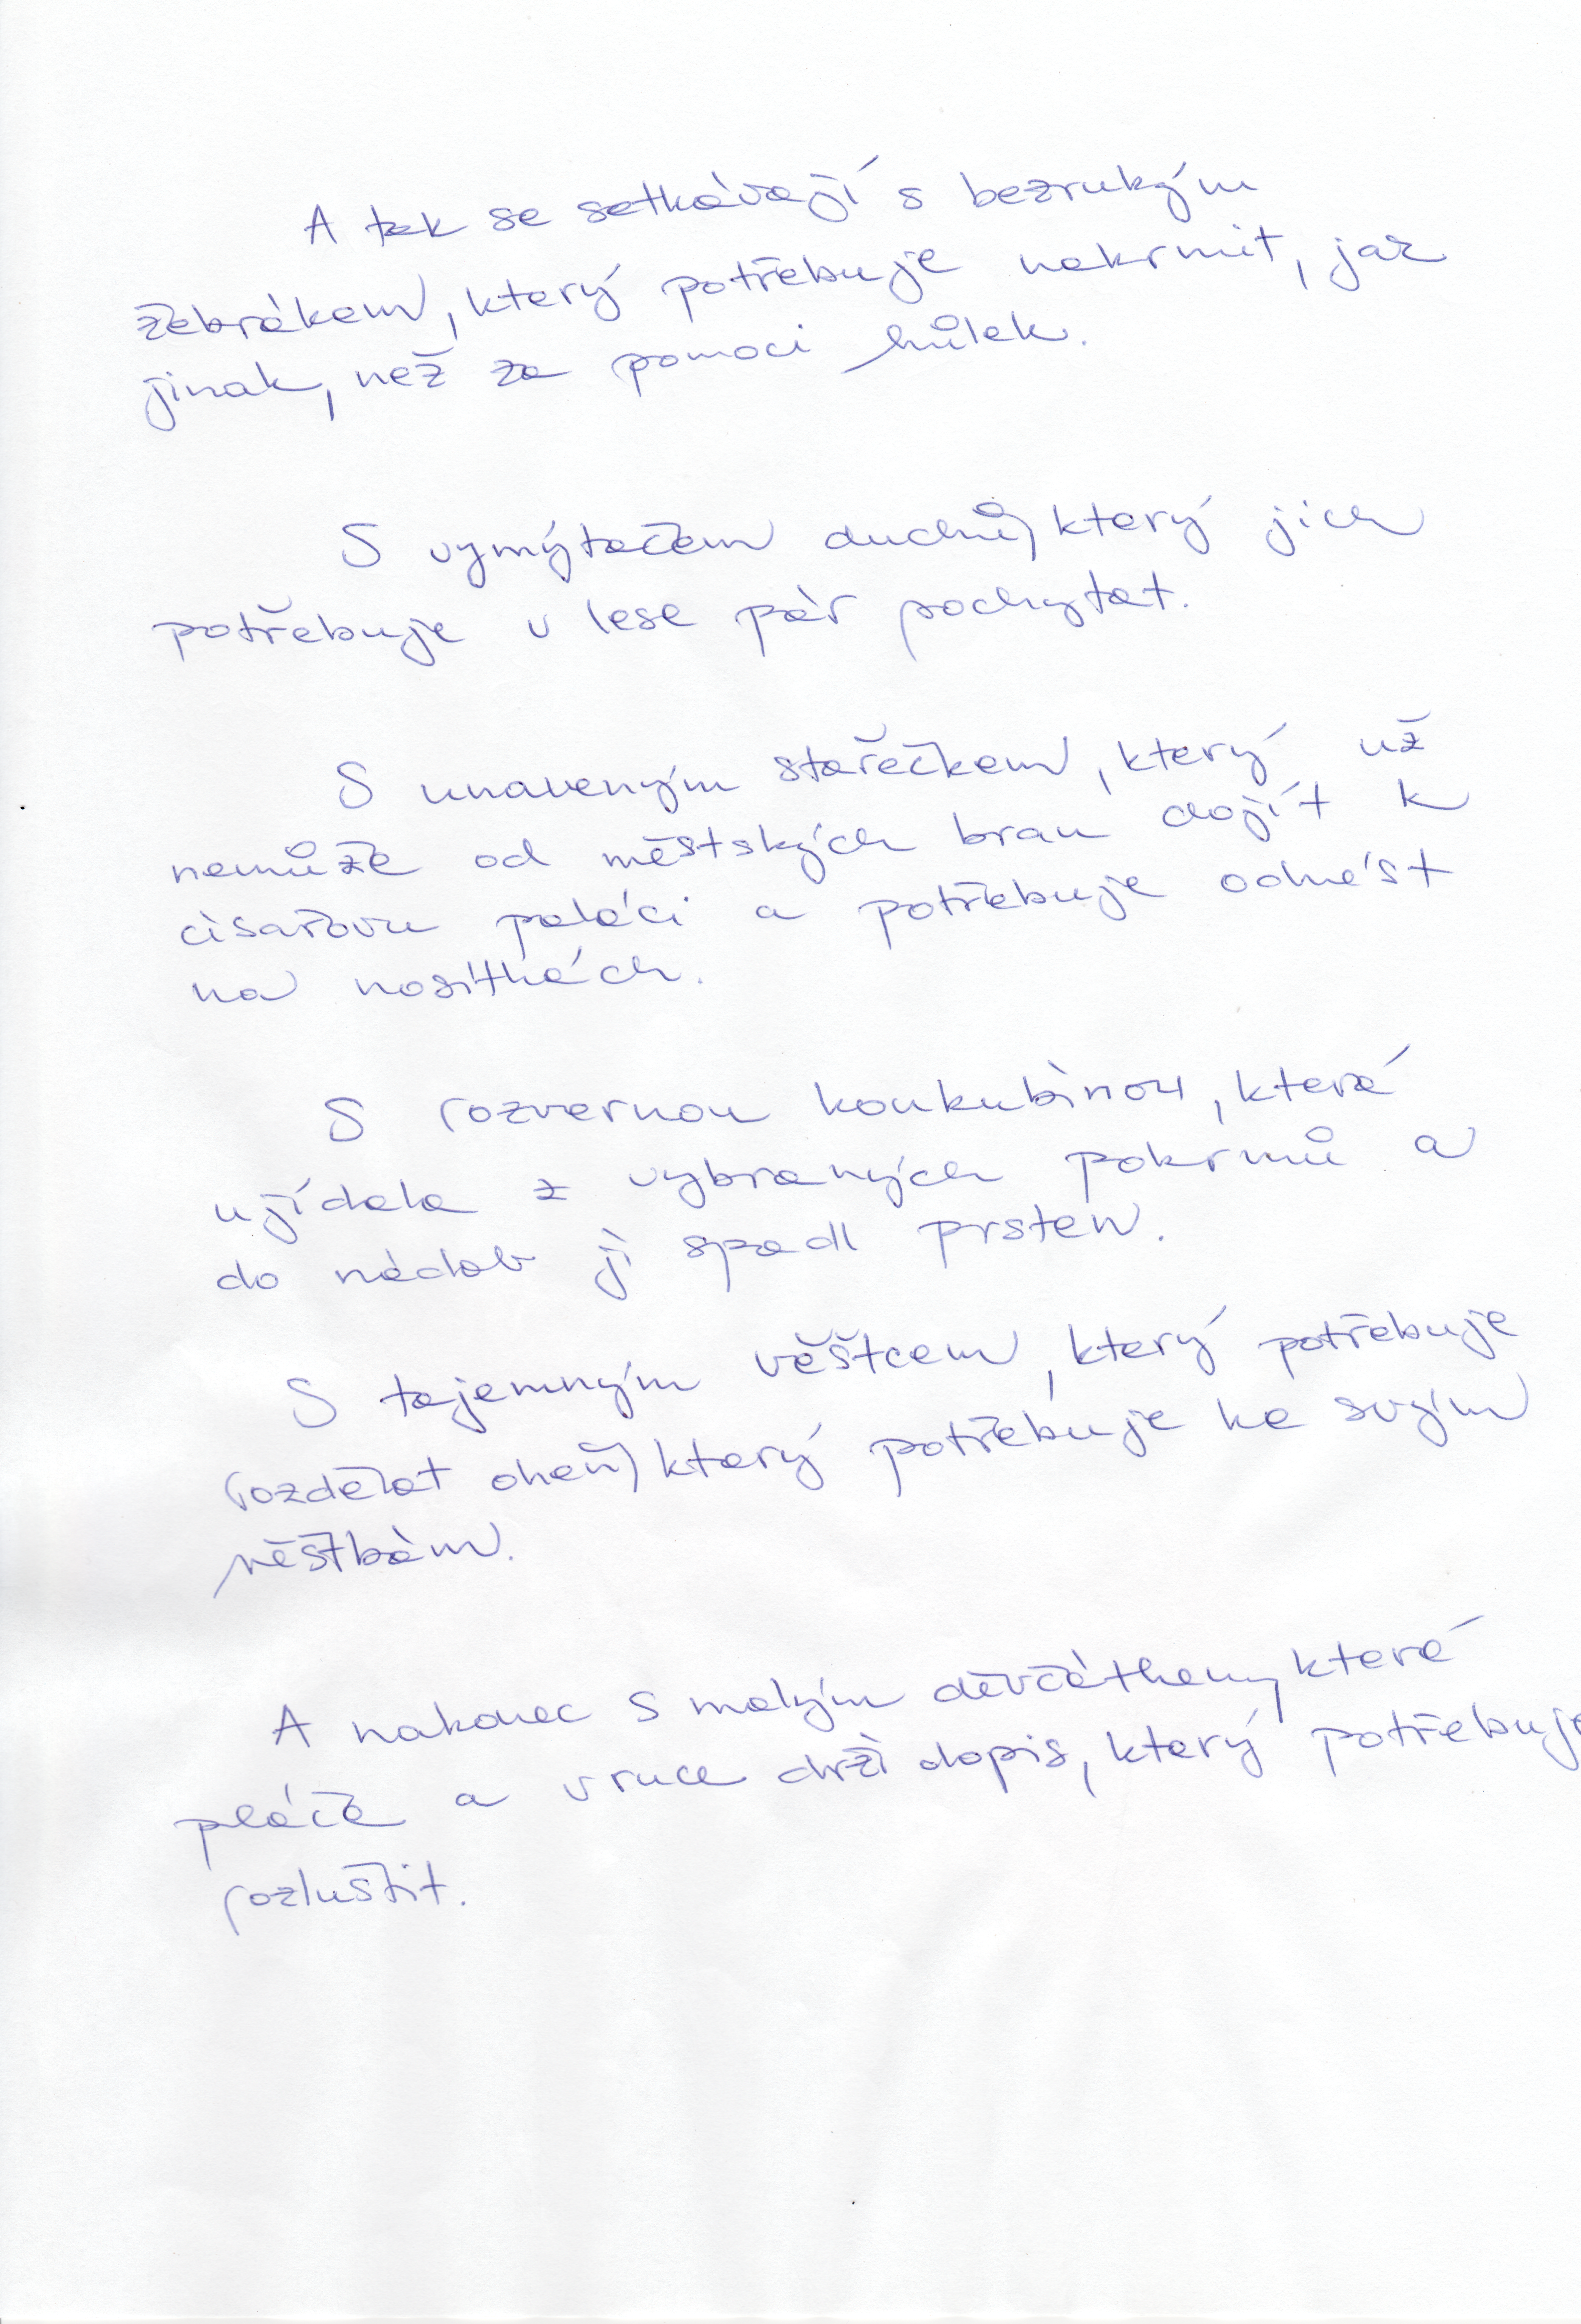 A tak se setkávají s bezrukým
žebrákem, který potřebuje nakrmit, jak
jinak, než za pomoci hůlek.
S vymýtačem duchů, který jich
potřebuje v lese pár pochytat.
S unaveným stařečkem, který už
nemůže od městských bran dojít k
císařovu paláci a potřebuje odnést
na nosítkách.
S rozvernou konkubínou, která
ujídala z vybraných pokrmů a
do nádob jí spadl prsten.
S tajemným věštcem, který potřebuje
rozdělat oheň, který potřebuje ke svým
věštbám.
A nakonec s malým děvčátkem, které
pláče a v ruce drží dopis, který potřebuje
rozluštit.